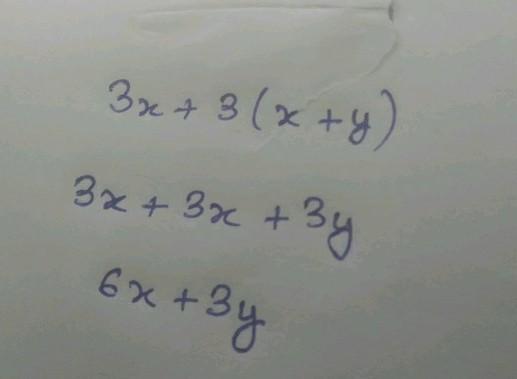 3x + 3 (x + y)
3x + 3x + 3y
6x + 3y